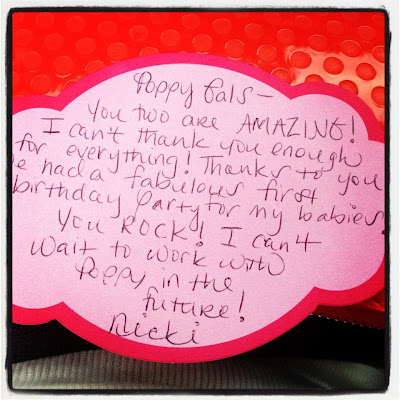 Poppy Gals -
You two are AMAZING!
I can't thank you enough
for everything! Thanks to you
e had a fabulous first
birthday party for my babies.
You ROCK! I can't
wait to work with
Poppy in the
future!
Nicki